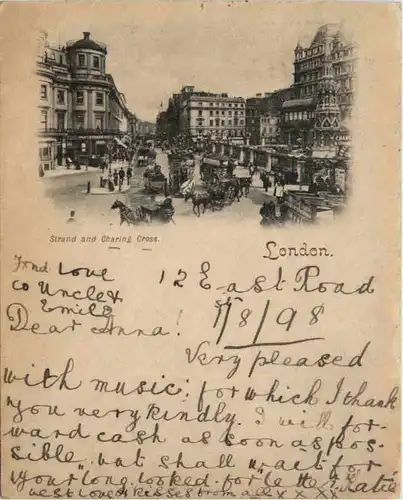 Strand and Charing Cross.
London.
Fond Love
to Uncle &
Emily
12 East Road
1st/8/98
Dear Anna!
Very pleased
with music: for which I thank
you very kindly. I will for-
ward cash as soon as pos-
sible but shall wait for
your long looked-for letter. Katie
best love & kisses from all x x x x x